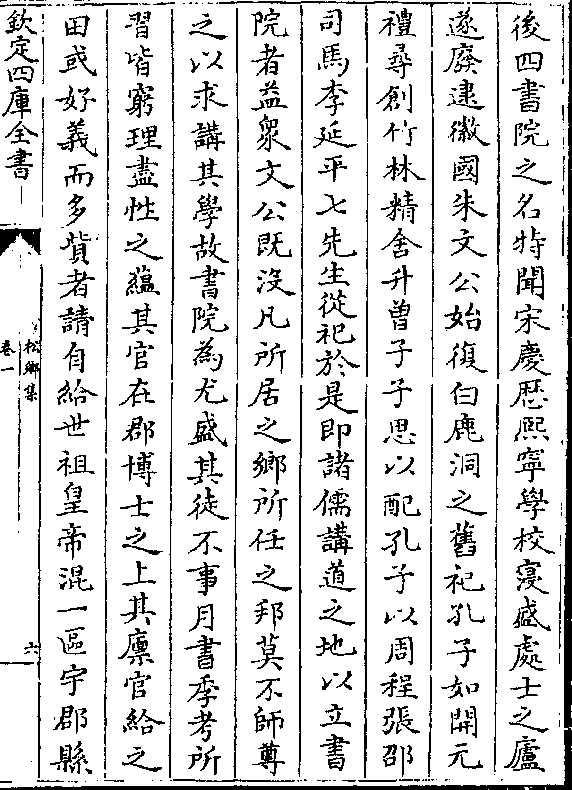 後四書院之名特聞宋慶厯熙寧學校寖盛處士之廬
遂廢逮徽國朱文公始復白鹿洞之舊祀孔子如開元
禮尋創竹林精舍升曾子子思以配孔子以周程張邵
司馬李延平七先生從祀於是即諸儒講道之地以立書
院者益衆文公既沒凡所居之鄉所任之邦莫不師尊
之以求講其學故書院為尤盛其徒不事月書季考所
習皆窮理盡性之蘊其官在郡博士之上其廪官給之
田或好義而多貲者請自給世祖皇帝混一區宇郡縣
欽定四庫全書
松鄉集
卷一
六